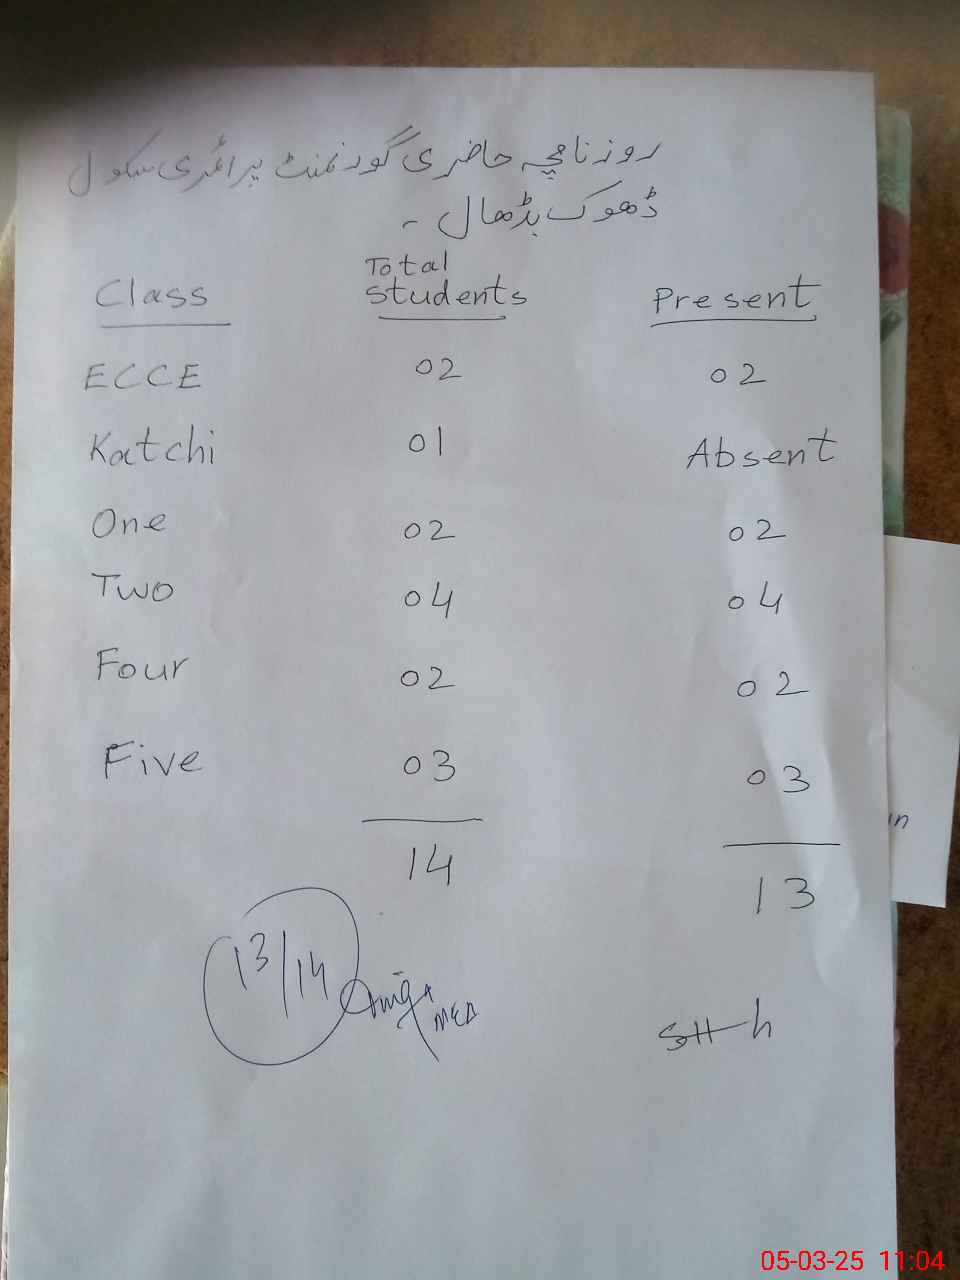 روزنامچہ حاضری گورنمنٹ پرائمری سکول
ڈھوک بڈھال ۔
Class Total students Present
ECCE 02 02
Katchi 01 Absent
One 02 02
Two 04 04
Four 02 02
Five 03 03
14 13
13/14
MEA
in
05-03-25 11:04